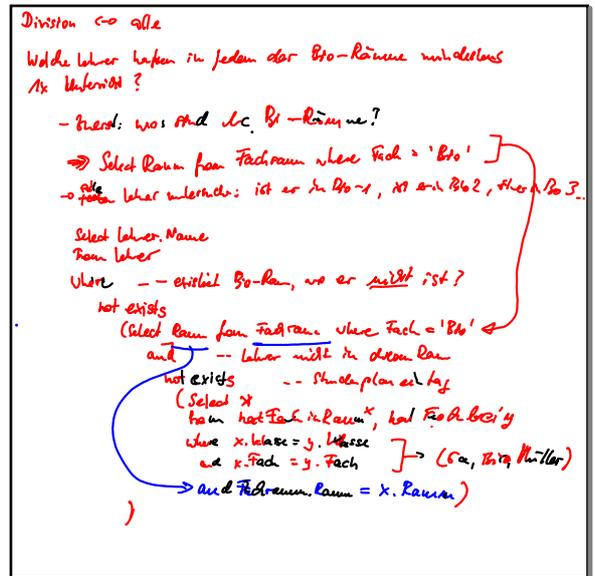 Division <-> alle
Welche Lehrer haben in jedem der Bio-Räume mindestens
1x Unterricht?
- Zuerst: was sind d.c. Bi-Räume?
=> Select Raum from Fachraum where Fach = 'Bio'
-> alle Lehrer untersuchen: ist er in Bio-1, ist er in Bio 2, Bio 3...
Select Lehrer.Name
From Lehrer
where -- existiert Bio-Raum, wo er nicht ist?
not exists
(Select Raum from Fachraum where Fach = 'Bio'
and -- Lehrer nicht in diesem Raum
not exists -- Stundenplaneintrag
(Select *
from hatFachinRaum x, hat Fach bei y
where x.Klasse = y.Klasse
and x.Fach = y.Fach -> (6a, Bio, Müller)
and Fachraum.Raum = x.Raum)
)